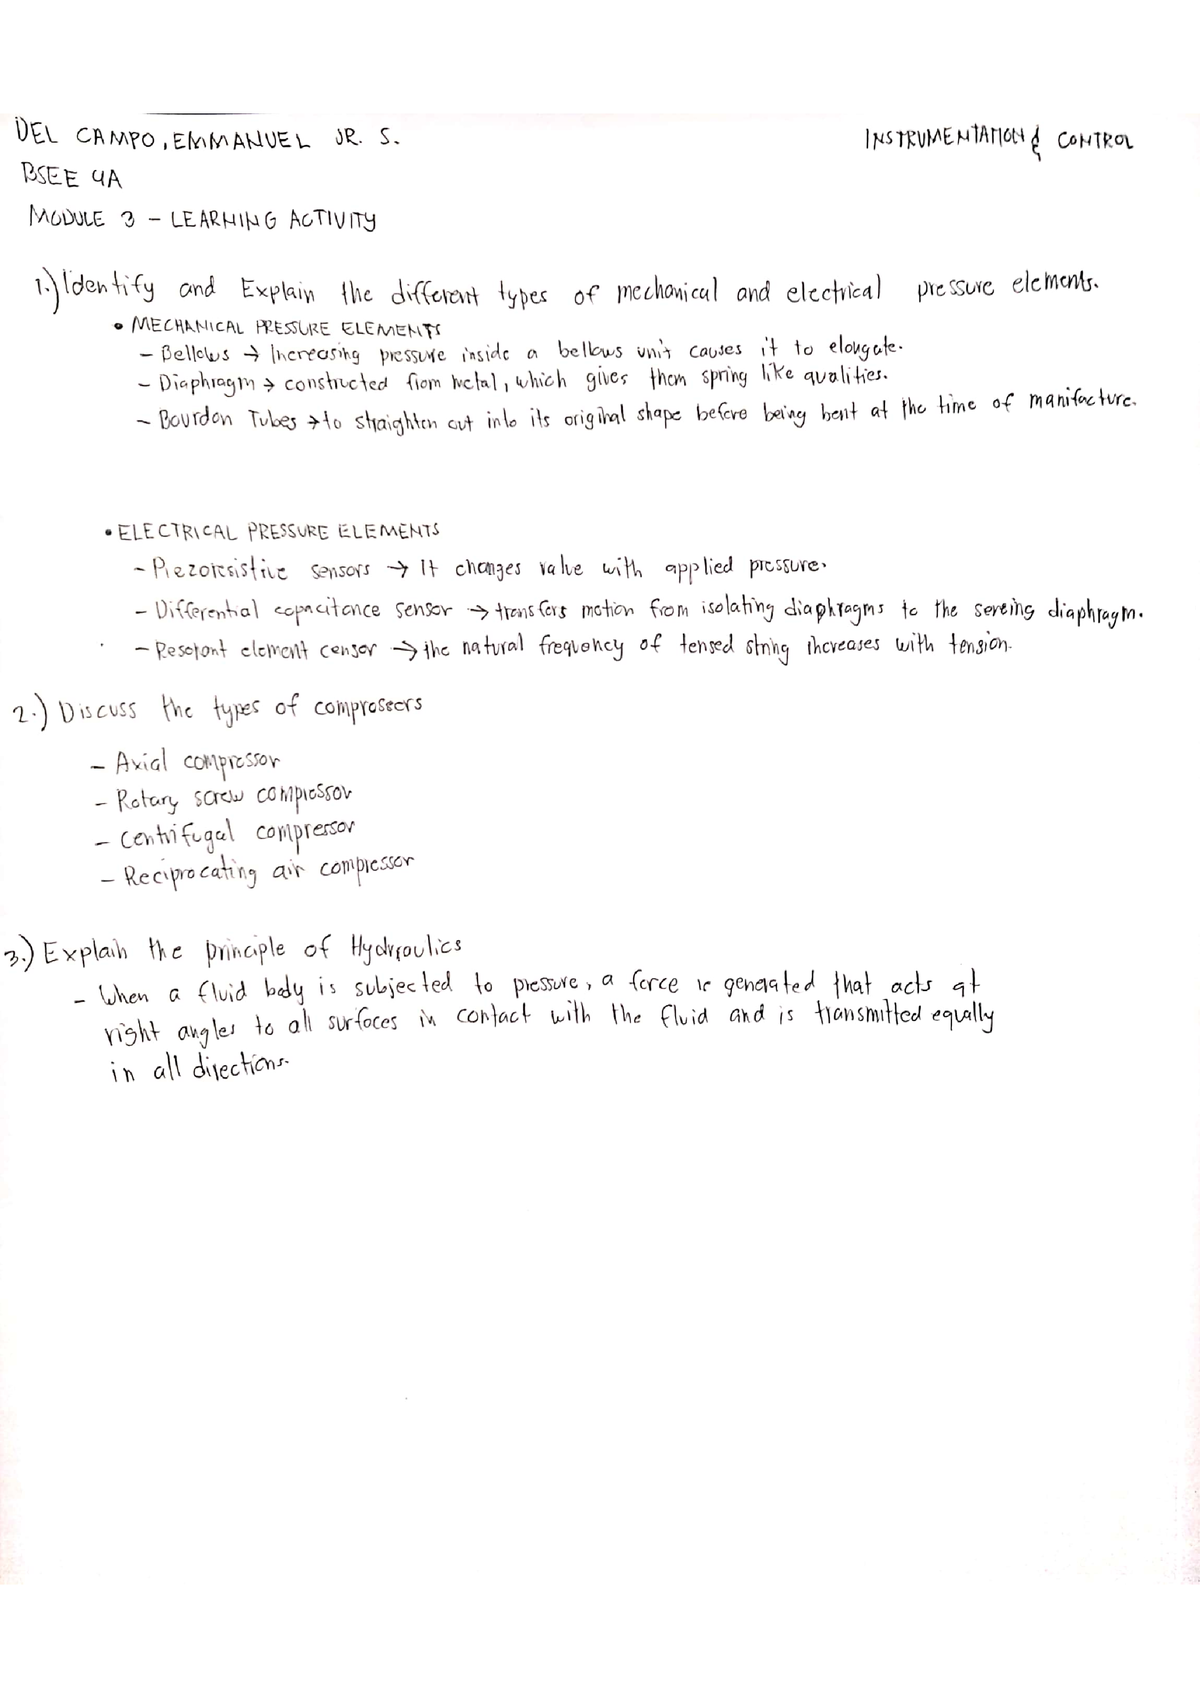 DEL CAMPO, EMMANUEL JR. S.
INSTRUMENTATION & CONTROL
BSEE 4A
MODULE 3 - LEARNING ACTIVITY
1.) Identify and Explain the different types of mechanical and electrical pressure elements.
• MECHANICAL PRESSURE ELEMENTS
- Bellows → Increasing pressure inside a bellows unit causes it to elongate.
- Diaphragm → constructed from metal, which gives them spring like qualities.
- Bourdon Tubes → to straighten out into its original shape before being bent at the time of manifacture.
• ELECTRICAL PRESSURE ELEMENTS
- Piezoresistive sensors → It changes value with applied pressure.
- Differential capacitance sensor → transfers motion from isolating diaphragms to the diaphragm.
- Resonant element censor → the natural frequency of tensed string increases with tension.
2.) Discuss the types of
- Axial compressor
- Rotary screw compressor
- Centrifugal compressor
- Reciprocating air compressor
3.) Explain the principle of Hydraulics
- When a fluid body is subjected to pressure, a force is generated that acts at
right angles to all surfaces in contact with the fluid and is transmitted equally
in all directions.